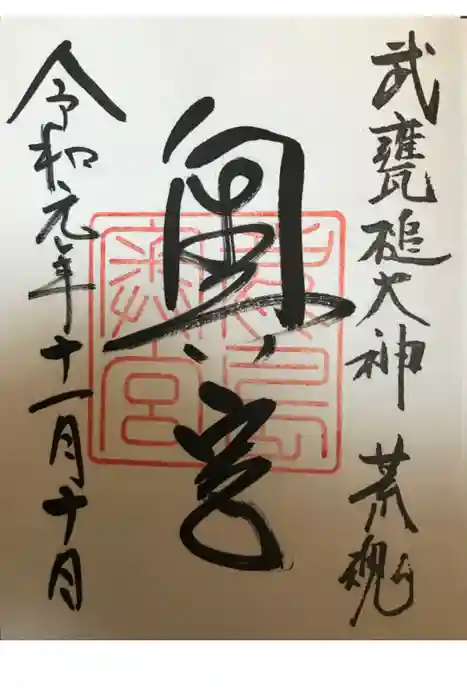 武甕槌大神 荒魂
奥宮
鹿島
奥宮
令和元年十一月十日